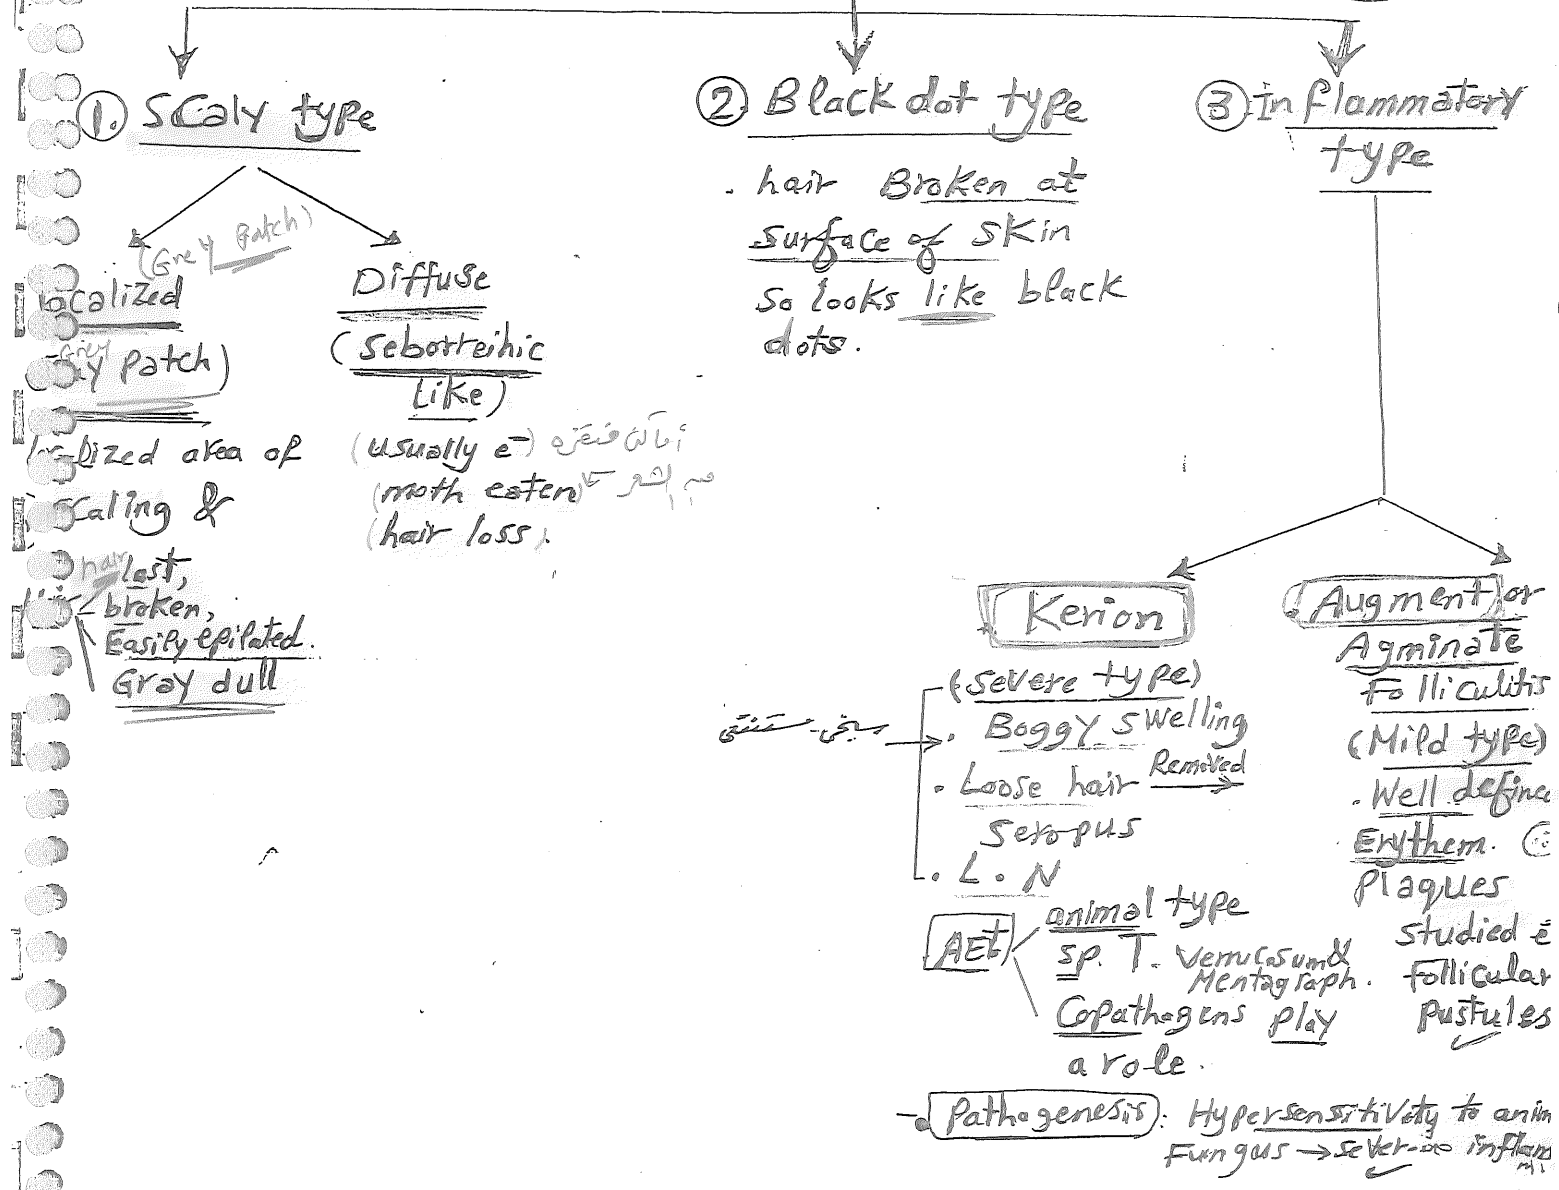 1. Scaly type
(Grey Patch)
localized
Grey
patch)
area of
Scaling &
hair
last,
broken,
Easily epilated.
Gray dull
Diffuse
(Seborreihic
Like)
(usually e-)
(moth eaten)
الشعر
(hair loss).
2. Black dot type
. hair Broken at
surface of skin
so looks like black
dots.
3 Inflammatory
type
Kerion
(severe type)
. Boggy swelling
. Loose hair Removed →
Seropus
. L. N
AEt
animal type
sp. T. Verrucosum &
Mentagraph.
Copathogens play
a role.
Pathogenesis: Hypersensitivity to anim
Fungus → sever inflam
Augment or
Agminate
Folliculitis
(Mild type)
. Well define
Erythem.
Plaques
studied e-
follicular
pustules